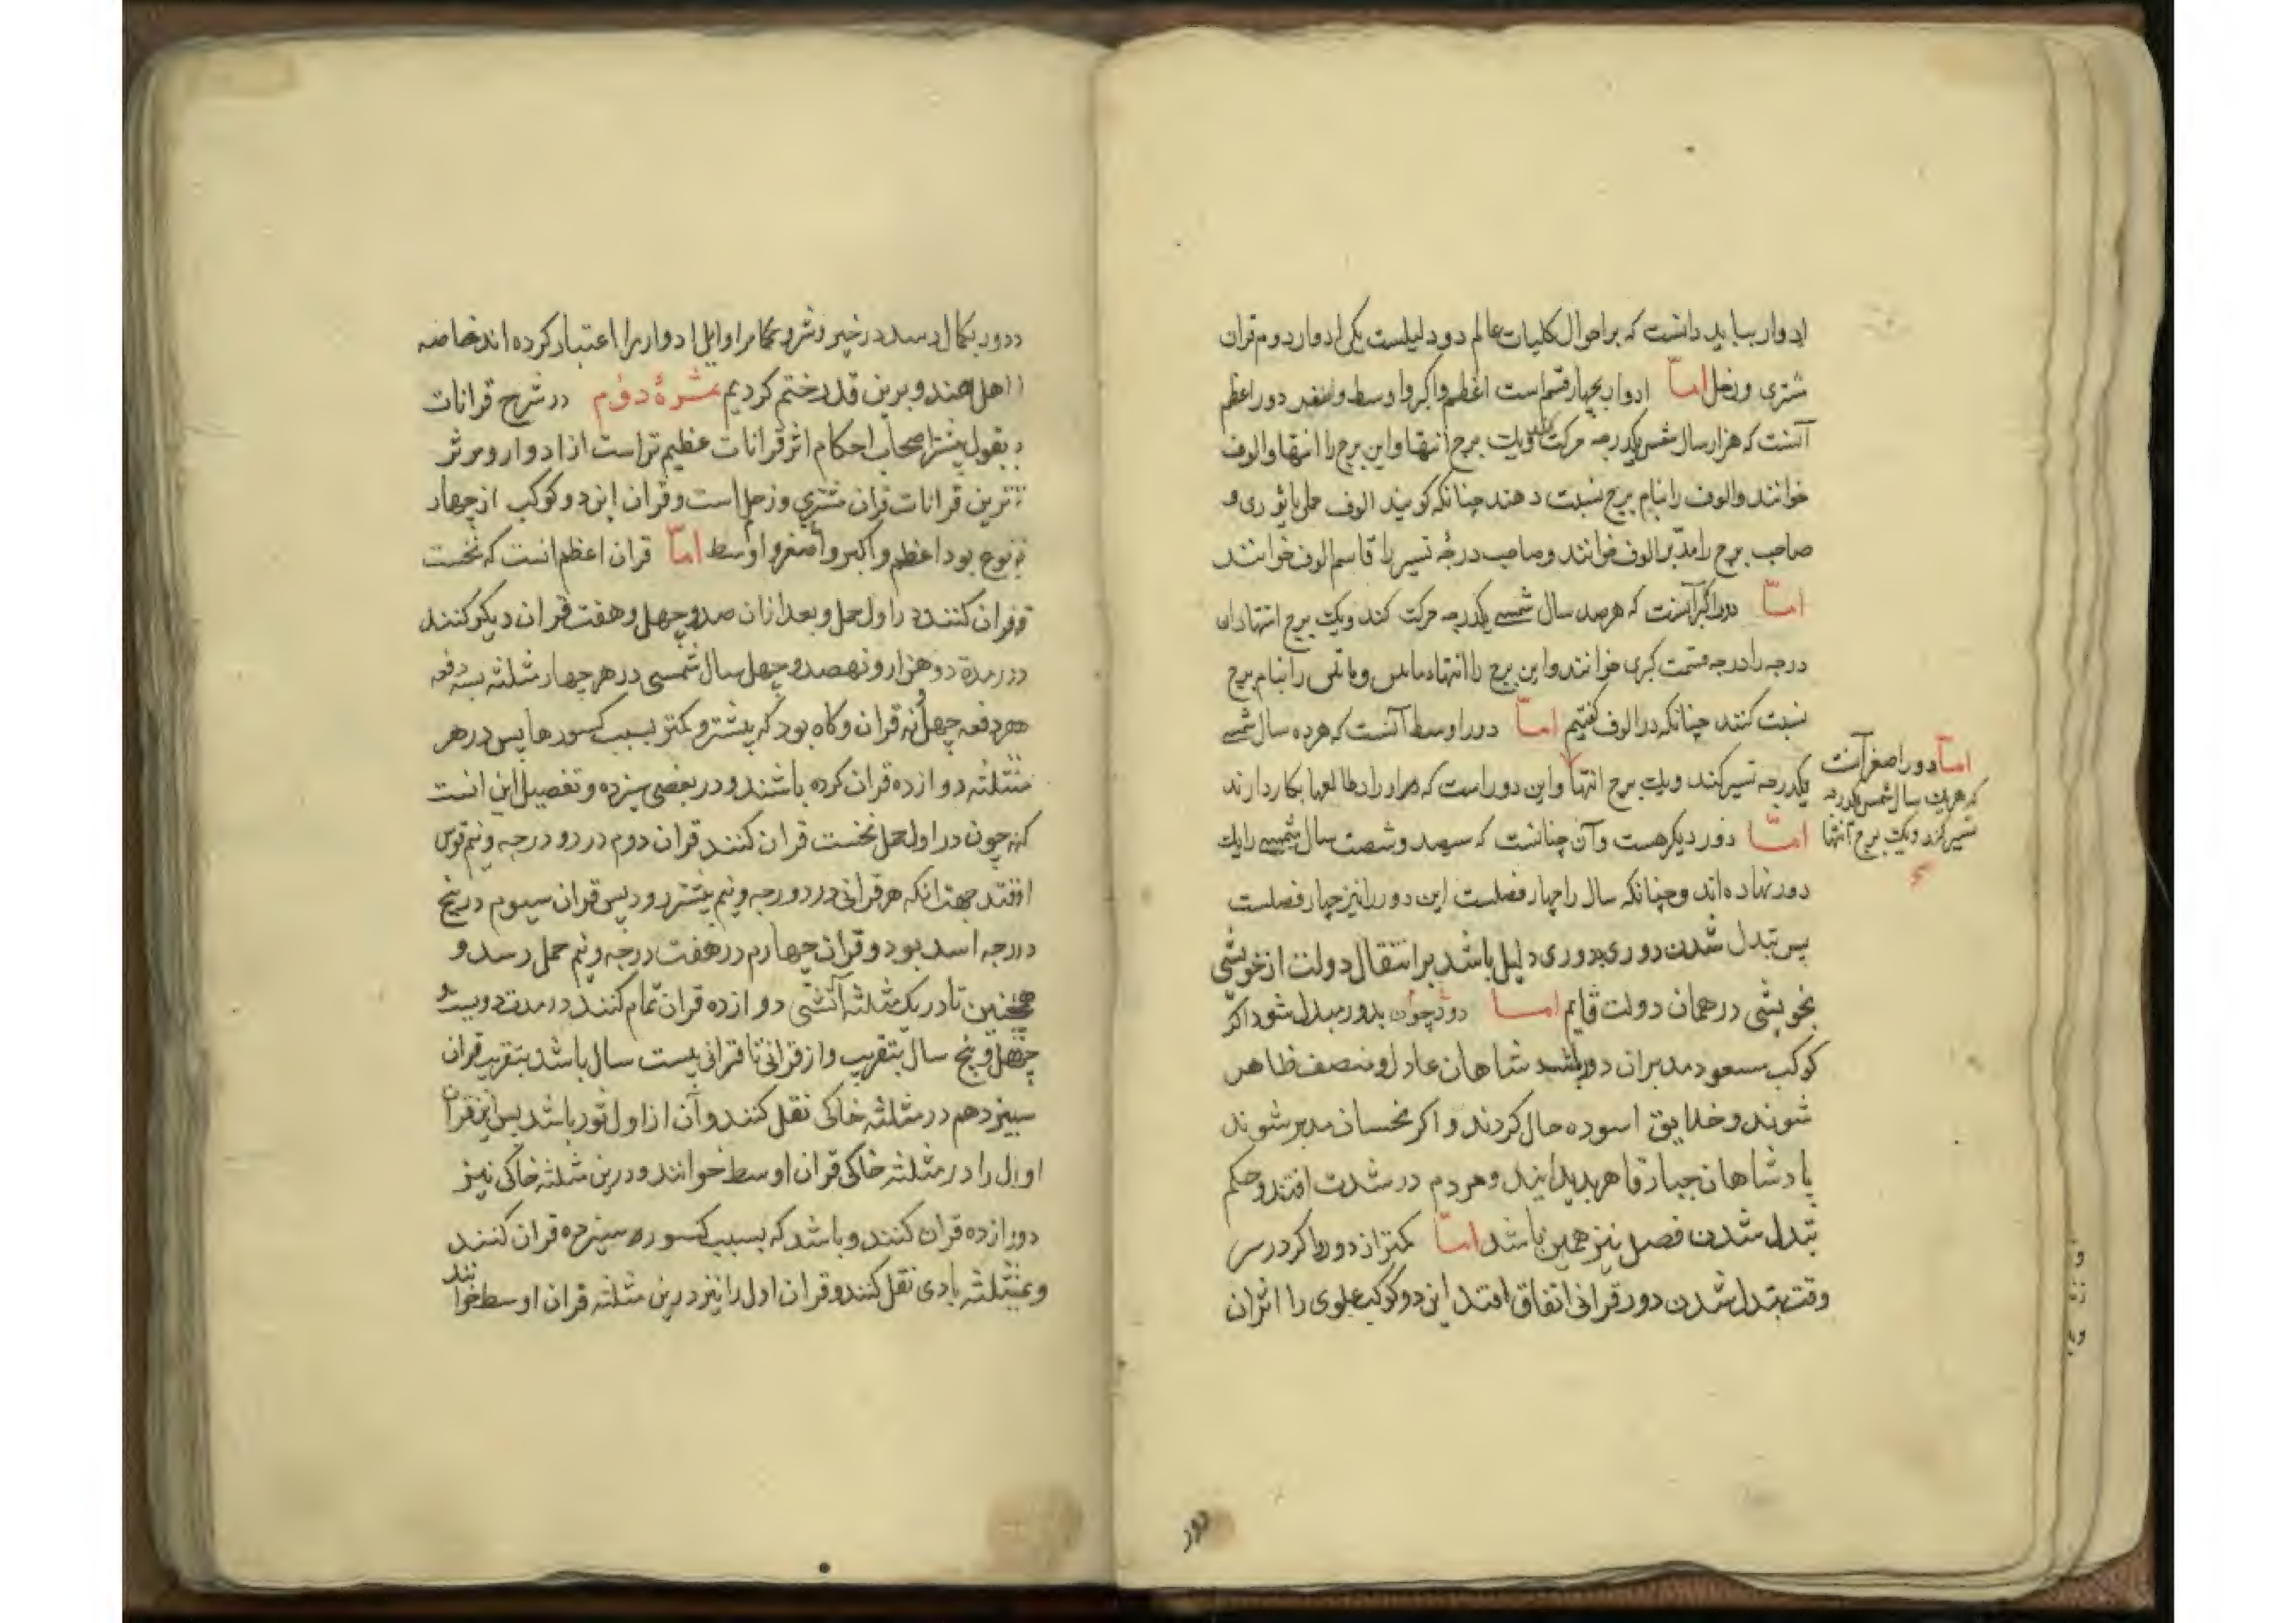 ادوار بباید دانست که بر احوال کلیات عالم دو دلیلست یکی ادوار دوم قران
مشتری وزحل اما ادوار بچهار قسم است اعظم واکبر واوسط واصغر دور اعظم
آنست که هزار سال شمسی یکدرجه حرکت کند ویک برج انتها واین برج را انتها والوف
خوانند والوف را بنام برج نسبت دهند چنانکه کویند الوف حملی یا ثوری و
صاحب برج را مدبر الوف خوانند وصاحب درجه تسییر را قاسم الوف خوانند
اما دور اکبر آنست که هر صد سال شمسی یکدرجه حرکت کند ویک برج انتها و ان
درجه را درجه قسمت کبری خوانند واین برج را انتهاء مأتین ومأتین را بنام برج
نسبت کنند چنانکه در الوف کفتیم اما دور اوسط آنست که هر ده سال شمسی
یکدرجه تسییر کند ویک برج انتها واین دور است که در طالعها بکار دارند
اما دور اصغر آنست
که هر یک سال شمسی یکدرجه
تسییر کند ویک برج انتها
اما دور دیکر هست وآن چنانست که سیصد وشصت سال شمسی را یک
دور نهاده اند وچنانکه سال را چهار فصلست این دور را نیز چهار فصلست
پس تبدل شدن دوری بدوری دلیل باشد بر انتقال دولت از خویشی
بخویشی در همان دولت قایم اما دور چون بدور مبدل شود اکر
کوکب مسعود مدبر ان دور باشد شاهان عادل ومنصف ظاهر
شوند وخلایق اسوده حال کردند واکر نحسان مدبر شوند
پادشاهان جبار قاهر پدید ایند ومردم در شدت افتند وحکم
تبدل شدن فصل نیز همین باشد اما کمتر از دور واکر در سر
وقت تبدل شدن دور قرانی اتفاق افتد این دو کوکب علوی را اثر ان
دور
دور بکمال رسد در خیر وشر وحکما مر اوایل ادوار را اعتبار کرده اند خاصه
اهل هند وبرین قدر ختم کردیم ثمرهٔ دوم در شرح قرانات
بقول بیشتر اصحاب احکام اثر قرانات عظیم تر است از ادوار ومؤثر
ترین قرانات قران مشتری وزحل است وقران این دو کوکب از چهار
نوع بود اعظم واکبر واصغر واوسط اما قران اعظم انست که نخست
قران کنند در اول حمل وبعد از ان صد وچهل وهفت قران دیکر کنند
در مدة دو هزار ونهصد وچهل سال شمسی در هر چهار مثلثه بسه دفعه
هر دفعه چهل نه قران وکاه بود که بیشتر وکمتر بسبب کسورها پس در هر
مثلثه دوازده قران کرده باشند ودر بعضی سیزده وتفصیل این انست
که چون در اول حمل نخست قران کنند قران دوم در دو درجه ونیم قوس
افتد جهت انکه هر قرانی در دو درجه ونیم بیشتر رود پس قران سیوم در پنج
درجه اسد بود وقران چهارم در هفت درجه ونیم حمل رسد و
همچنین تا در یک مثلثه آتشی دوازده قران تمام کنند در مدت دویست و
چهل وپنج سال بتقریب واز قرانی تا قرانی بیست سال باشد بتقریب قران
سیزدهم در مثلثه خاکی نقل کنند وآن از اول ثور باشد پس این قران
اول را در مثلثه خاکی قران اوسط خوانند ودرین مثلثه خاکی نیز
دوازده قران کنند وباشد که بسبب کسوره سیزده قران کنند
وبمثلثه بادی نقل کنند وقران اول را نیز درین مثلثه قران اوسط خوانند